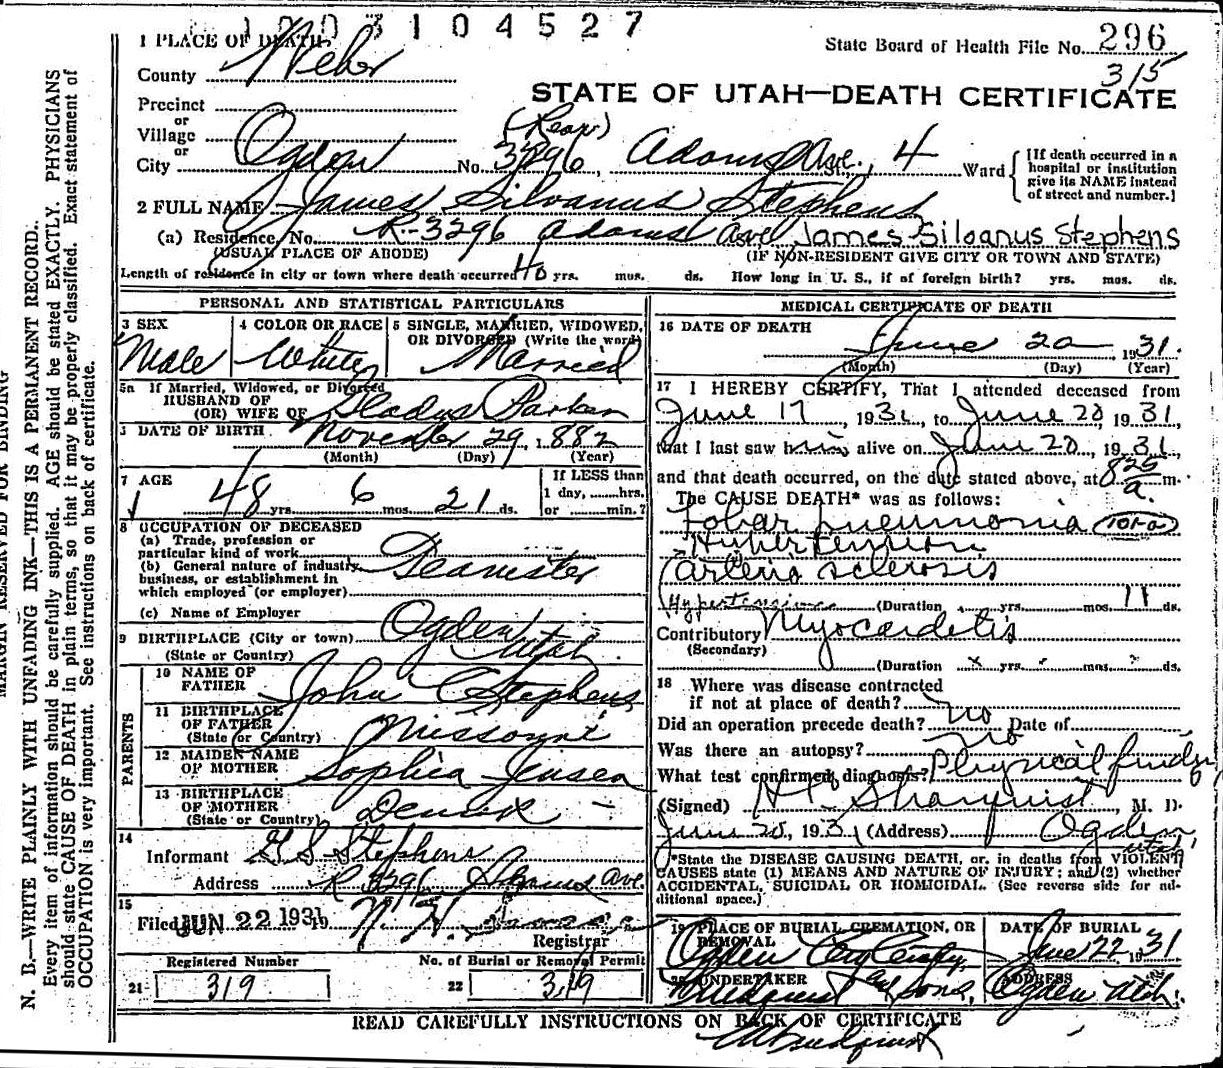 1003104527
1 PLACE OF DEATH
State Board of Health File No. 296
315
County Weber
STATE OF UTAH—DEATH CERTIFICATE
Precinct
or
Village
or
(Rear)
City Ogden No. 3296, Adams Ave. St., 4 Ward
[If death occurred in a hospital or institution give its NAME instead of street and number.]
2 FULL NAME James Silvanus Stephens
(a) Residence, No. R-3296 Adams Ave James Siloanus Stephens
(USUAL PLACE OF ABODE) (IF NON-RESIDENT GIVE CITY OR TOWN AND STATE)
Length of residence in city or town where death occurred 40 yrs. mos. ds. How long in U. S., if of foreign birth? yrs. mos. ds.
PERSONAL AND STATISTICAL PARTICULARS
3 SEX Male
4 COLOR OR RACE White
5 SINGLE, MARRIED, WIDOWED, OR DIVORCED (Write the word) Married
5a If Married, Widowed, or Divorced
HUSBAND OF
(OR) WIFE OF Gladys Parker
DATE OF BIRTH November 29, 1882
(Month) (Day) (Year)
7 AGE 48 yrs. 6 mos. 21 ds.
If LESS than
1 day, hrs.
or min.?
8 OCCUPATION OF DECEASED
(a) Trade, profession or
particular kind of work
(b) General nature of industry,
business, or establishment in
which employed (or employer) Teamster
(c) Name of Employer
9 BIRTHPLACE (City or town) Ogden
(State or Country) Utah
PARENTS
10 NAME OF
FATHER John C Stephens
11 BIRTHPLACE
OF FATHER
(State or Country) Missouri
12 MAIDEN NAME
OF MOTHER Sophia Jensen
13 BIRTHPLACE
OF MOTHER
(State or Country) Denmk
14
Informant G S Stephens
Address R 3296 Adams Ave.
15
Filed JUN 22 1931 19
Registrar
Registered Number No. of Burial or Removal Permit
21 319 22 319
MEDICAL CERTIFICATE OF DEATH
16 DATE OF DEATH
June 20 1931.
(Month) (Day) (Year)
17 I HEREBY CERTIFY, That I attended deceased from
June 17, 1931, to June 20, 1931,
that I last saw him alive on June 20, 1931,
and that death occurred, on the date stated above, at 825 a. m.
The CAUSE DEATH* was as follows:
Lobar pneumonia (101-a)
Hypertension
Arterio sclerosis
Hypertension (Duration yrs. mos. 11 ds.
Contributory Myocarditis
(Secondary)
(Duration x yrs. mos. ds.
18 Where was disease contracted
if not at place of death?
Did an operation precede death? no Date of
Was there an autopsy? No
What test confirmed diagnosis? Physical finding
(Signed) M. D.
June 20, 1931 (Address) Ogden, Utah,
*State the DISEASE CAUSING DEATH, or, in deaths from VIOLENT
CAUSES state (1) MEANS AND NATURE OF INJURY; and (2) whether
ACCIDENTAL, SUICIDAL OR HOMICIDAL. (See reverse side for ad-
ditional space.)
19 PLACE OF BURIAL, CREMATION, OR REMOVAL
Ogden City
DATE OF BURIAL
June 22 1931
20 UNDERTAKER
& Sons,
ADDRESS
Ogden Utah.
READ CAREFULLY INSTRUCTIONS ON BACK OF CERTIFICATE
MARGIN RESERVED FOR BINDING
N. B.—WRITE PLAINLY WITH UNFADING INK—THIS IS A PERMANENT RECORD.
Every item of information should be carefully supplied. AGE should be stated EXACTLY. PHYSICIANS
should state CAUSE OF DEATH in plain terms, so that it may be properly classified. Exact statement of
OCCUPATION is very important. See instructions on back of certificate.